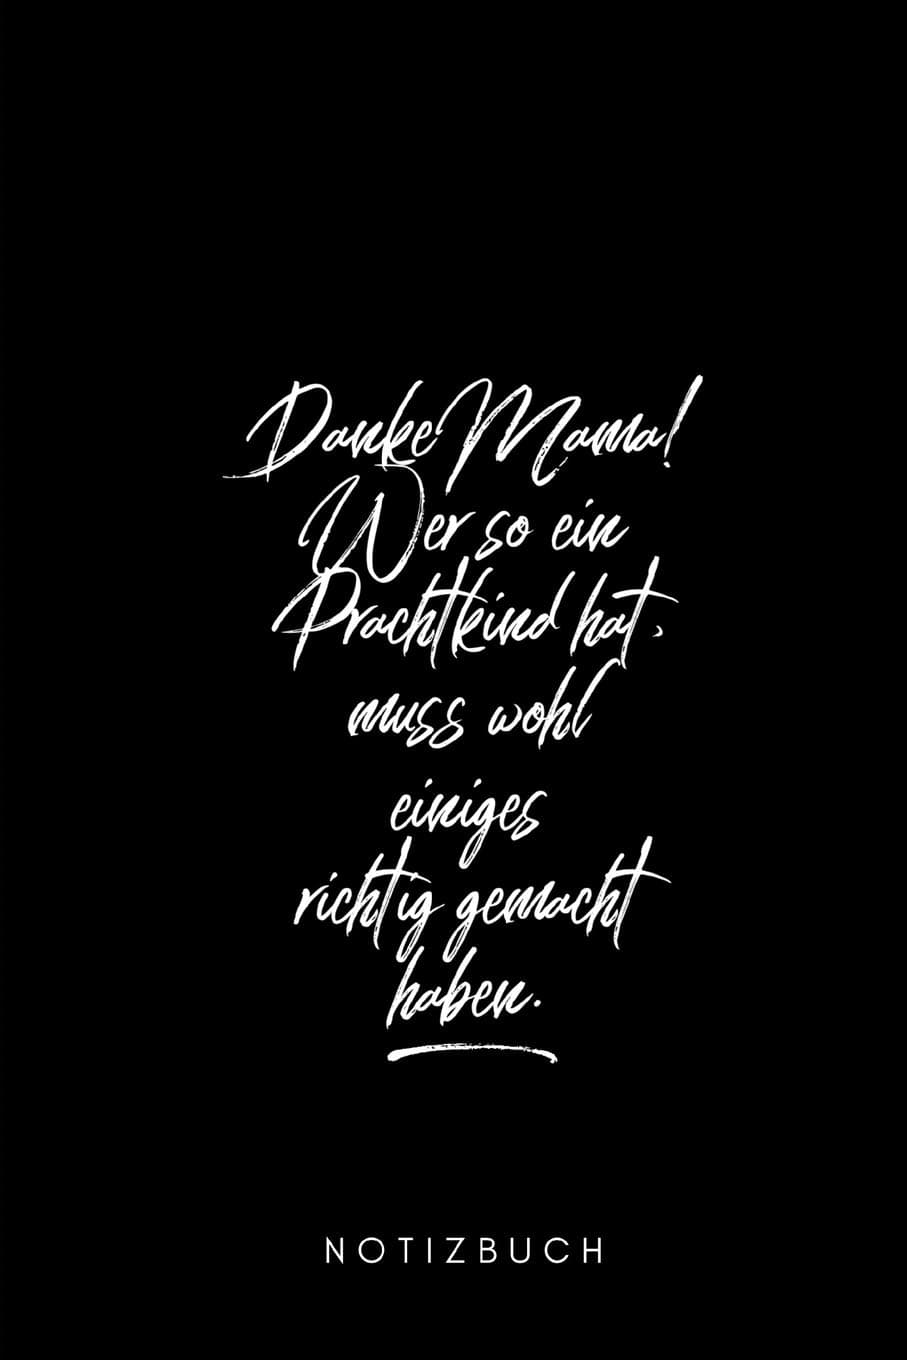 Danke Mama!
Wer so ein
Prachtkind hat,
muss wohl
einiges
richtig gemacht
haben.
NOTIZBUCH